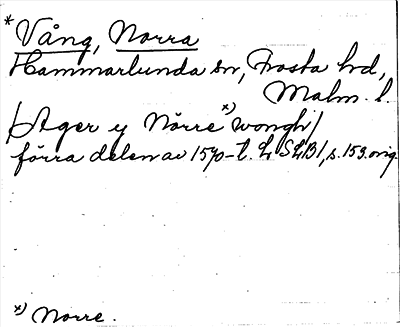 * Vång, Norra
Hammarlunda sn, Frosta hd,
Malm. l.
/Ager y Nörre x) wongh/
förra delen av 1570-t. L SLB1, s. 153. orig.
x) Norre.